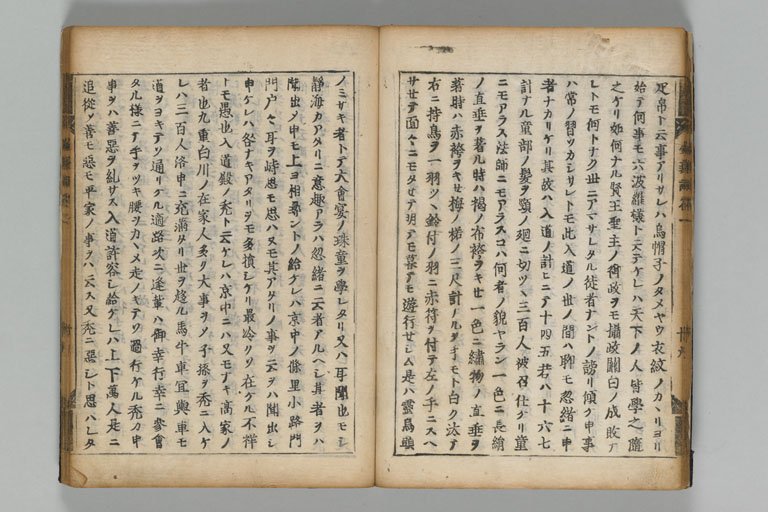 疋帛ト云事アリサレハ烏帽子ノタメヤウ衣紋ノカヽリヨリ
始テ何事モ六波羅様ト云テケレハ天下ノ人皆学之随
之ケリ如何ナル賢王聖主ノ御政ヲモ摂政関白ノ成敗ナ
レトモ何トナク世ニアマサレタル徒者ナントノ謗リ傾ク申事
ハ常ノ習ツカシサレトモ此入道ノ世ノ間ハ聊モ忽緒ニ申
者ナカリケリ其故ハ入道ノ計ヒニテ十四五若ハ十六七
計ナル童部ノ髪ヲ頸ノ廻ニ切ツヽ三百人被召仕ケリ童
ニモアラス法師ニモアラスコハ何者ノ貌ヤラン一色ニ長絹
ノ直垂ヲ着ル時ハ褐ノ布袴ヲキセ一色ニ繍物ノ直垂ヲ
著時ハ赤袴ヲキセ梅ノ楉ノ三尺計ナルヲ手モト白ク汰テ
右ニ持鳥ヲ一羽ツヽ鈴付ノ羽ニ赤符ヲ付テ左ノ手ニスヘ
サセテ面々ニモタセテ明テモ暮テモ遊行セシム是ハ霊烏頭
ノミサキ者トテ大会宴ノ珠童ヲ学レタリ又ハ耳聞也モシ
静海カアタリニ意趣アラハ忽緒ニ云者アルヘシ其者ヲハ
聞出メ申モ上ヨ相尋ントノ給ケレハ京中ノ條里小路門
門戸々ニ耳ヲ峙思モ思ハヌモ其アタリノ事ヲ云ヲハ聞出シ
申ケレハ各ナキアタリヲモ多損シケリ最冷クソ在ケル不祥
トモ愚也入道殿ノ禿ト云ケレハ京中ニハ又モナキ高家ノ
者也九重白川ノ在家人多ク大事ヲソ子孫ヲ禿ニ入ケ
レハ三百人洛中ニ充満タリ世ヲ趍ル馬牛車宜輿車モ
道ヲヨキテソ通リケル適路次ニ逢輩ハ御幸行幸ニ参会
タル様ニテ手ヲツキ腰ヲカヽメ走ノキテソ過行ケル禿カ申
事ヲハ善悪ヲ糺サス入道許容シ給ケレハ上下万人是ニ
追従ソ善モ悪モ平家ノ事ヲハ云ス又禿ニ悪シト思ハレタ